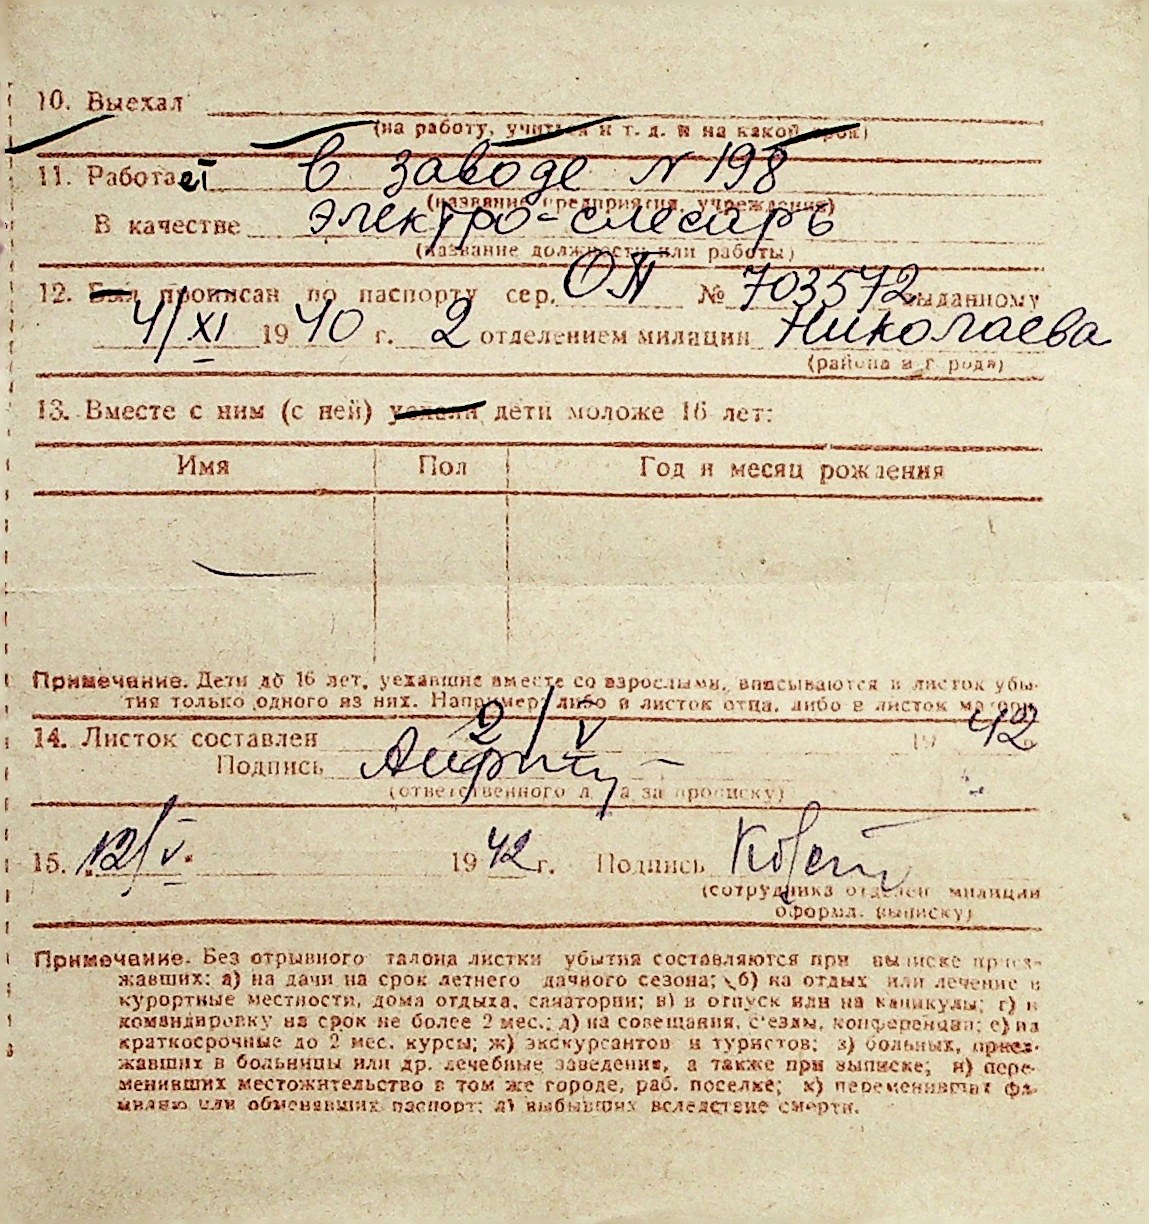 10. Выехал
(на работу, учиться и т. д. и на какой срок)
11. Работает в заводе № 198
(название предприятия, учреждения)
В качестве электро-слесарь
(название должности или работы)
12. Был прописан по паспорту сер. ОП № 703572 выданному
4/XI 1940 г. 2 отделением милиции Николаева
(района и города)
13. Вместе с ним (с ней) уехали дети моложе 16 лет:
Имя Пол Год и месяц рождения
Примечание. Дети до 16 лет, уехавшие вместе со взрослыми, вписываются в листок убы-
тия только одного из них. Например: либо в листок отца, либо в листок матери.
14. Листок составлен 2/V 1942
Подпись
(ответственного лица за прописку)
15. 12/V. 1942 г. Подпись
(сотрудника отделен. милиции
оформл. выписку)
Примечание. Без отрывного талона листки убытия составляются при выписке приез-
жавших: а) на дачи на срок летнего дачного сезона; б) на отдых или лечение в
курортные местности, дома отдыха, санатории; в) в отпуск или на каникулы; г) в
командировку на срок не более 2 мес.; д) на совещания, с'езды, конференции; е) на
краткосрочные до 2 мес. курсы; ж) экскурсантов и туристов; з) больных, приез-
жавших в больницы или др. лечебные заведения, а также при выписке; и) пере-
менивших местожительство в том же городе, раб. поселке; к) переменивших фа-
милию или обменявших паспорт; л) выбывших вследствие смерти.